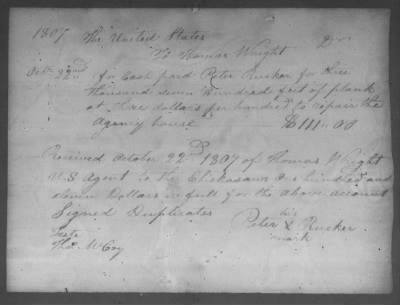 1807 The United States
To Thomas Wright Dr
Octr 22nd for Cash paid Peter Rucker for three
thousand seven hundred feet of plank
at three dollars per hundred to repair the
Agency house $111.00
Received October 22d 1807 of Thomas Wright
U.S Agent to the Chickasaws One hundred and
eleven Dollars in full for the above account
Signed Duplicates
his
Peter X Rucker
mark
Teste
Thos. McCoy